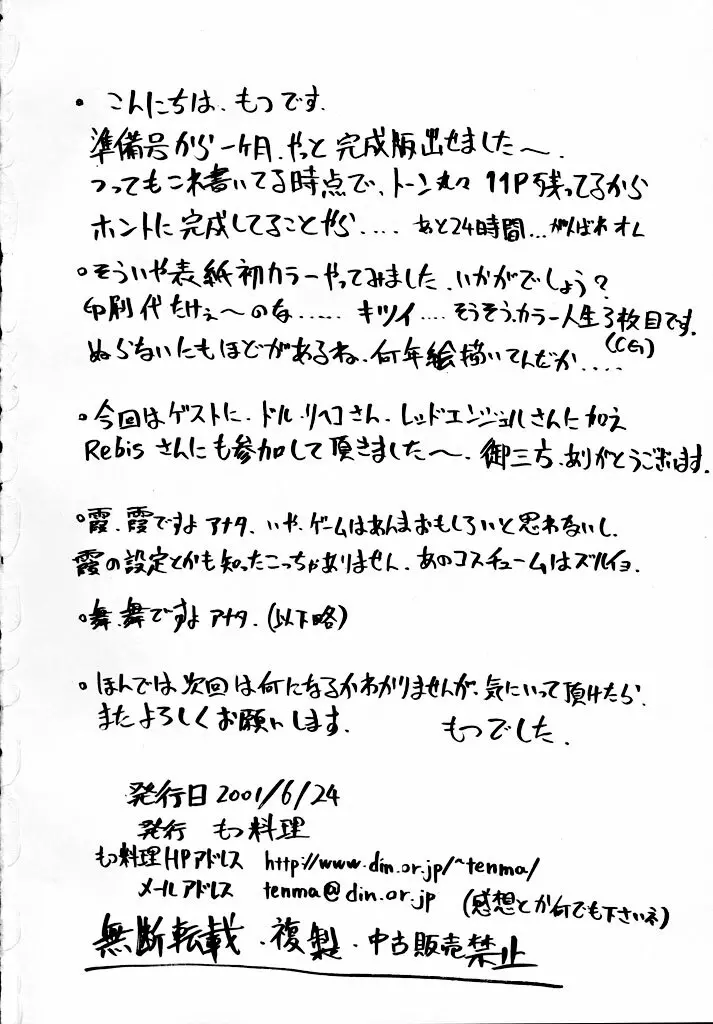 ・こんにちは、もつです.
準備号から一ヶ月、やっと完成版出せました〜.
つってもこれ書いてる時点で、トーン丸々11P残ってるから
ホントに完成してることやら.... あと24時間...がんばれオレ
◦そういや表紙初カラーやってみました、いかがでしょう?
印刷代たけぇ〜のな...... キツイ.... そうそう、カラー人生3枚目です.
(CG)
ぬらないにもほどがあるね、何年絵描いてんだか....
・今回はゲストに、ドル・リヘコさん、レッドエンジェルさんに加え
Rebisさんにも参加して頂きました〜、御三方、ありがとうございます.
◦霞、霞ですよアナタ、いや、ゲームはあんまおもしろいと思わないし、
霞の設定とかも知ったこっちゃありません、あのコスチュームはズルイョ.
◦舞、舞ですよアナタ.(以下略)
◦ほんでは次回は何になるかわかりませんが、気にいって頂けたら、
またよろしくお願いします. もつでした.
発行日 2001/6/24
発行 もつ料理
もつ料理HPアドレス http://www.din.or.jp/~tenma/
メールアドレス tenma@din.or.jp (感想とか何でも下さいネ)
無断転載・複製・中古販売禁止